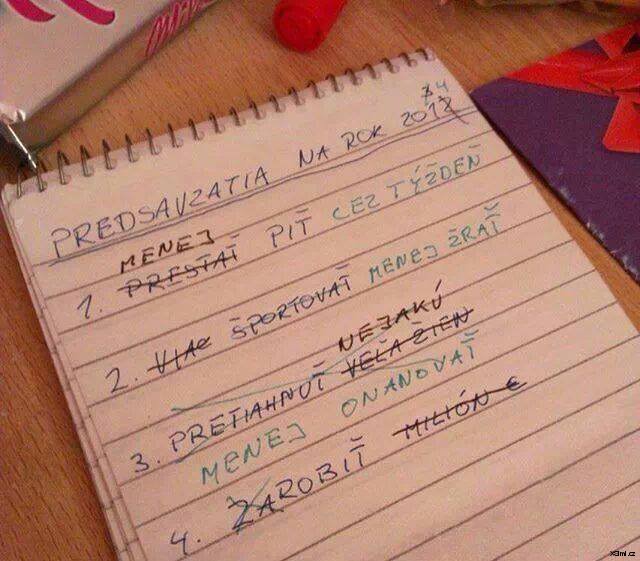 PREDSAVZATIA NA ROK 2012 34
MENEJ
1. PRESTAŤ PIŤ CEZ TÝŽDEŇ
2. VIAC ŠPORTOVAŤ MENEJ ŽRAŤ
NEJAKÚ
3. PRETIAHNUŤ VEĽA ŽIEN
MENEJ ONANOVAŤ
4. ZAROBIŤ MILIÓN €
X3mi.cz